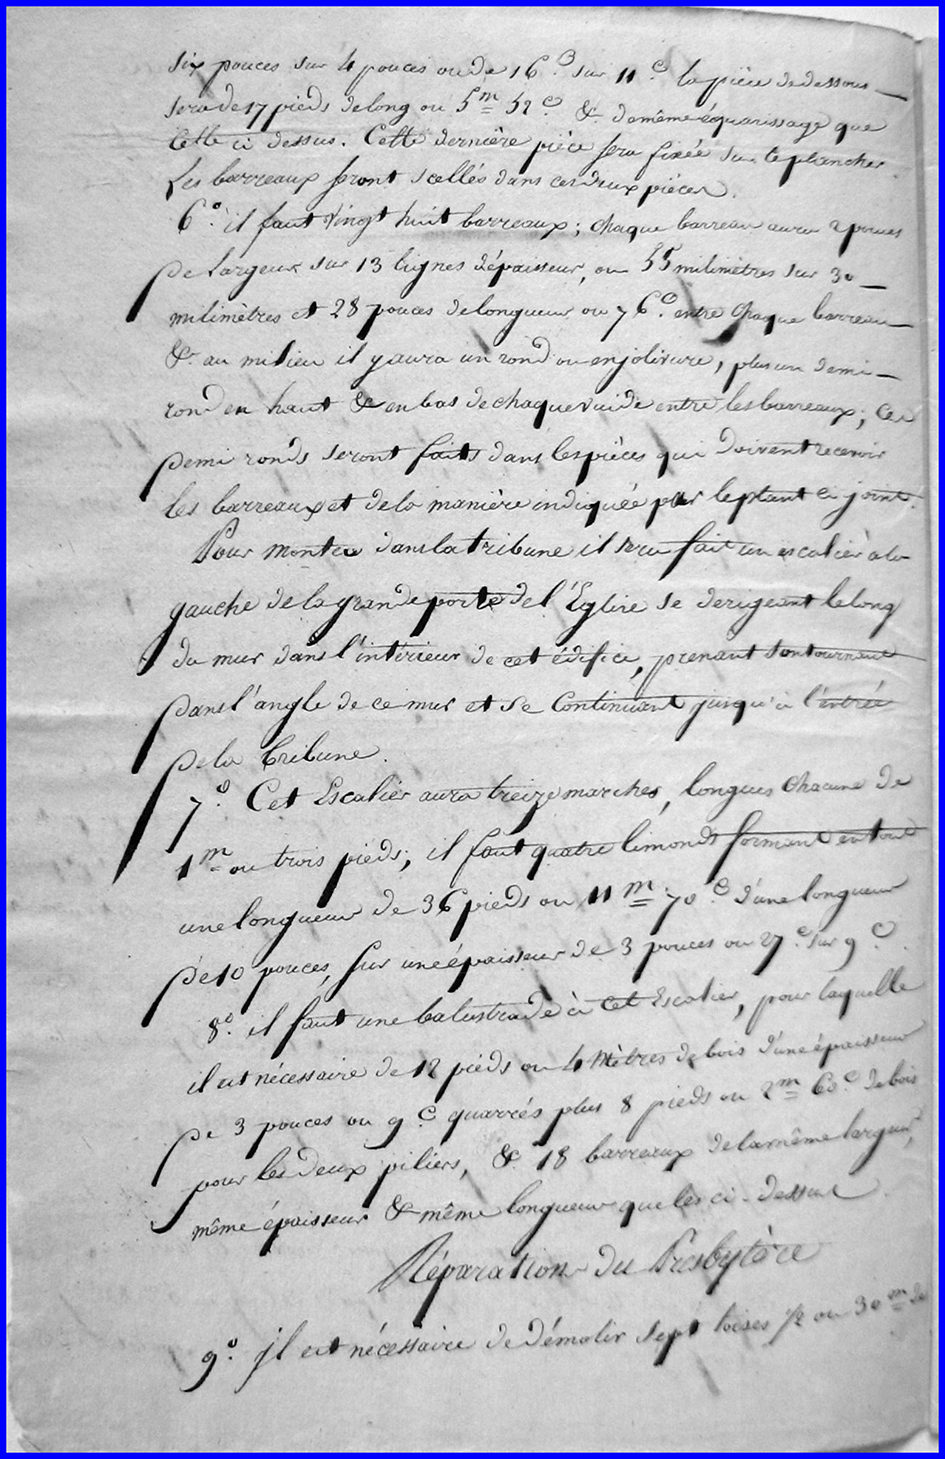 six pouces sur 4 pouces ou de 16 c. sur 11 c. la pièce de dessous
sera de 17 pieds de long ou 5 m 52 c. & de même équarissage que
cette ci dessus. Cette dernière pièce sera fixée sur le plancher
Les barreaux seront scellés dans ces deux pièces.
6.° il faut vingt huit barreaux; chaque barreau aura 2 pouces
de largeur sur 13 lignes d'épaisseur, ou 55 milimètres sur 30
milimètres et 28 pouces de longueur ou 76 c. entre chaque barreau
& au milieu il y aura un rond ou enjolivure, plus un demi
rond en haut & en bas de chaque vuide entre les barreaux; ces
demi ronds seront faits dans les pièces qui doivent recevoir
les barreaux et de la manière indiquée par le plant ci joint.
Pour monter dans la tribune il sera fait un escalier à la
gauche de la grande porte de l'Eglise se derigeant le long
du mur dans l'intérieur de cet édifice, prenant son tournant
dans l'angle de ce mur et se continuant jusqu'à l'entrée
de la tribune.
7.° Cet Escalier aura treize marches, longues chacune de
1 m ou trois pieds; il faut quatre limonds formant en tout
une longueur de 36 pieds ou 11 m 70 c. d'une longueur
de 10 pouces, sur une épaisseur de 3 pouces ou 27 c. sur 9 c.
8.° il faut une balustrade à cet Escalier, pour laquelle
il est nécessaire de 12 pieds ou 4 mètres de bois d'une épaisseur
de 3 pouces ou 9 c. quarrés plus 8 pieds ou 2 m 60 c. de bois
pour les deux piliers, & 18 barreaux de la même largeur,
même épaisseur & même longueur que les ci-dessus.
Réparation du Presbytère
9.° Il est nécessaire de démolir sept toises 1/2 ou 30 m de